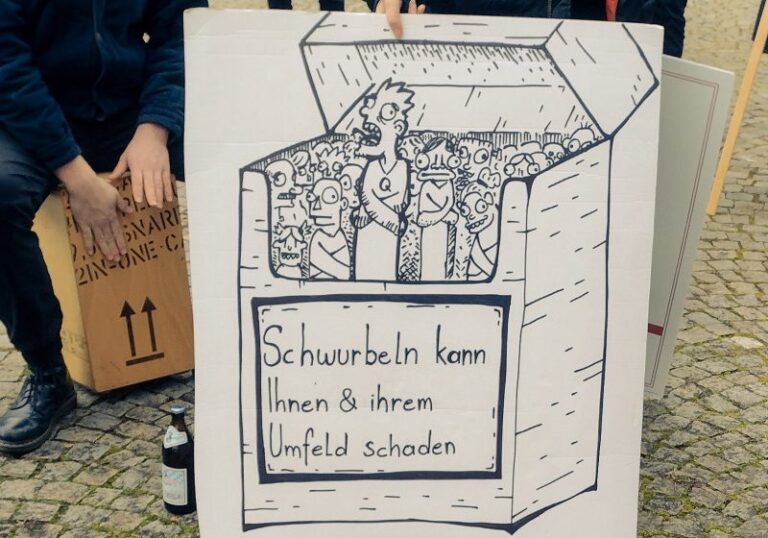 Q
Schwurbeln kann
Ihnen & ihrem
Umfeld schaden
2IN-ONE-CA